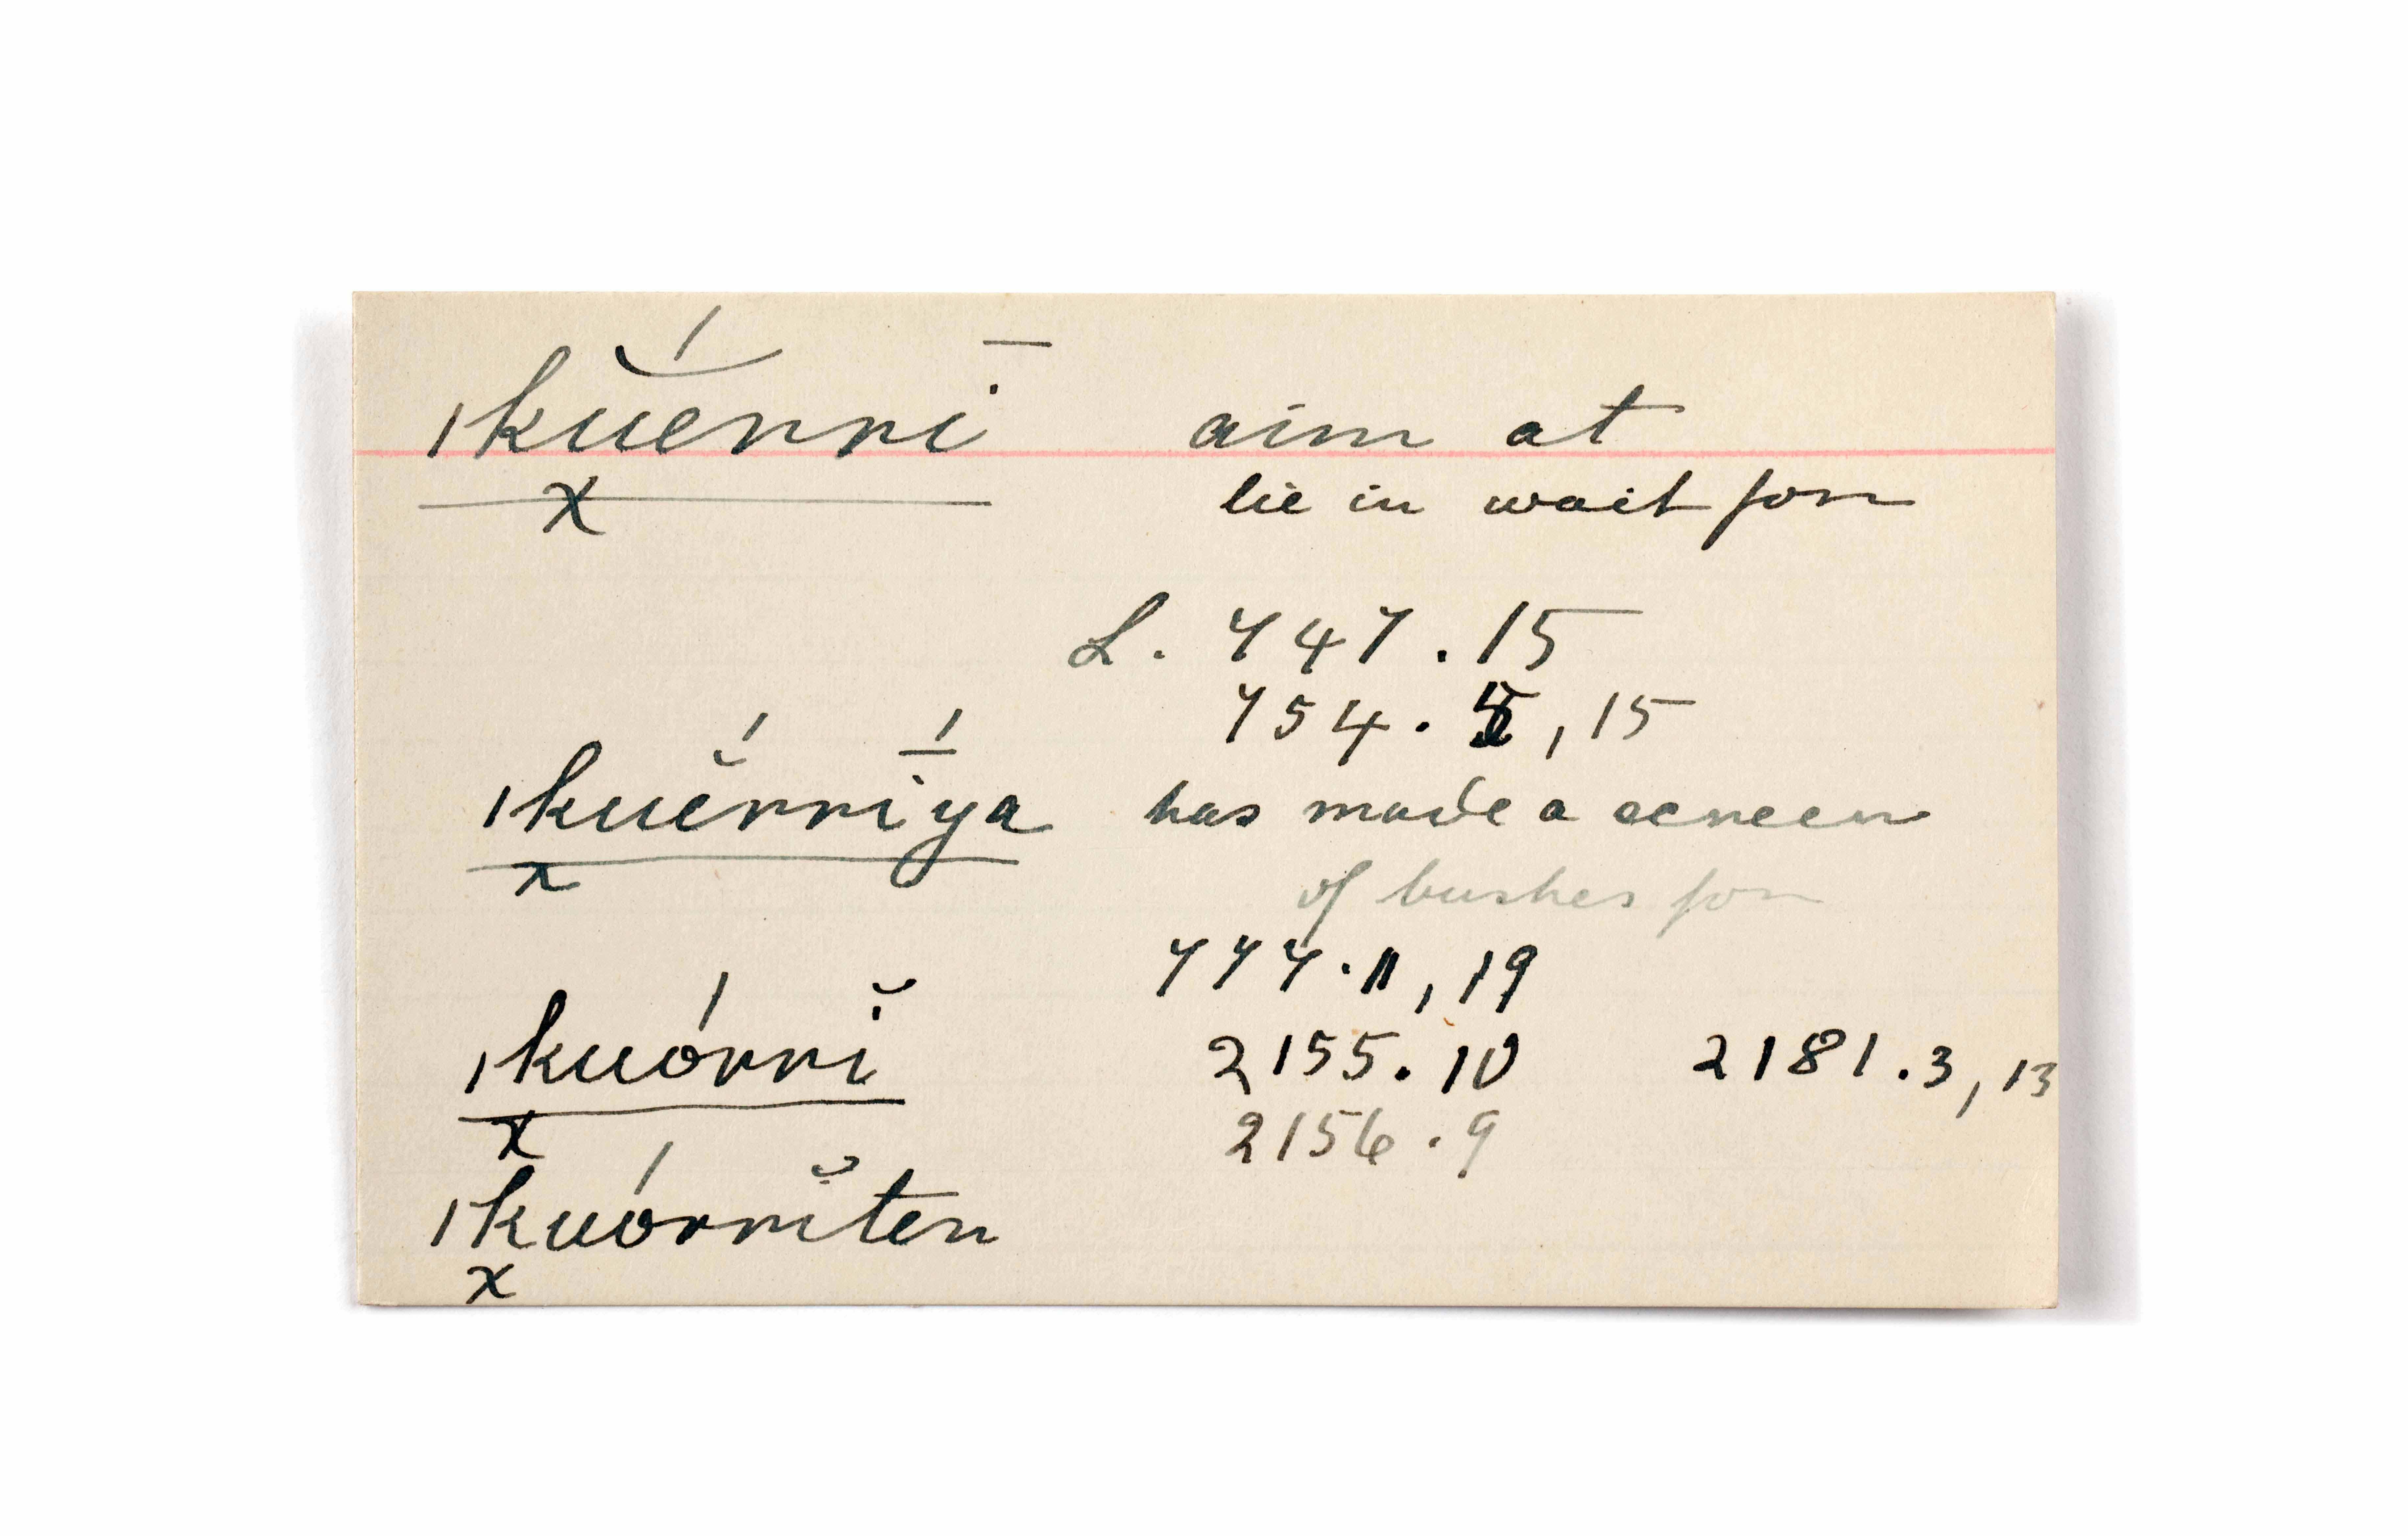 ǀkuĕ́rrī aim at
x lie in wait for
L. 747.15
754.5, 15
ǀkuĕ́rrī́ya has made a screen
x of bushes for
777.11, 19
ǀkuórrĭ 2155.10 2181.3, 13
x 2156.9
ǀkuórrĭten
x